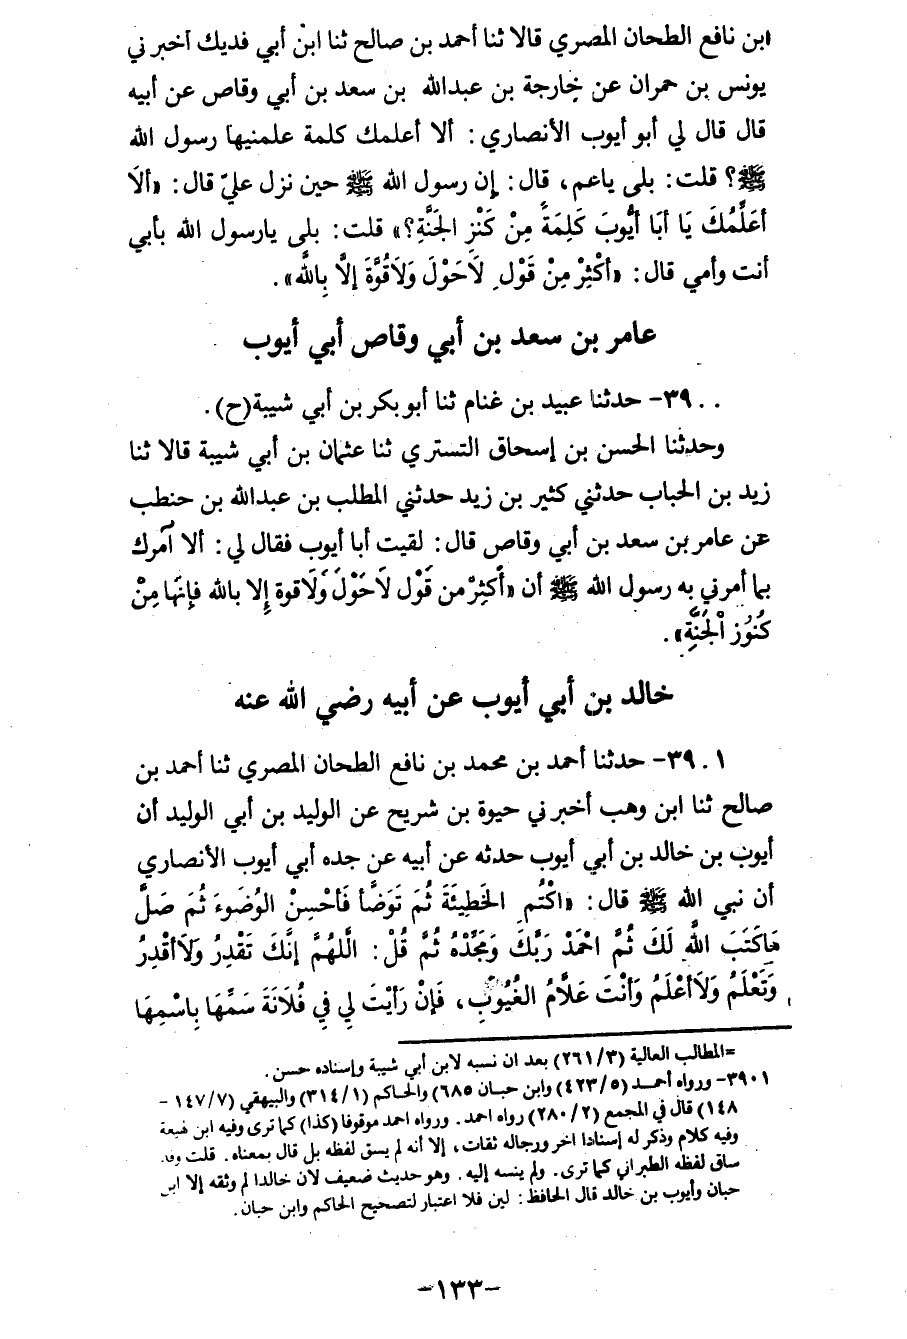 ابن نافع الطحان المصري قالا ثنا أحمد بن صالح ثنا ابن أبي فديك أخبرني
يونس بن حمران عن خارجة بن عبدالله بن سعد بن أبي وقاص عن أبيه
قال قال لي أبو أيوب الأنصاري : ألا أعلمك كلمة علمنيها رسول الله
ﷺ؟ قلت : بلى ياعم، قال : إن رسول الله ﷺ حين نزل عليّ قال : «ألَا
أُعَلِّمُكَ يَا أبَا أيُّوبَ كَلِمَةً مِنْ كَنْزِ الجَنَّةِ؟» قلت : بلى يارسول الله بأبي
أنت وأمي قال : «أكْثِرْ مِنْ قَوْلِ لَاحَوْلَ وَلَاقُوَّةَ إلَّا بِاللَّه» .
عامر بن سعد بن أبي وقاص أبي أيوب
٣٩٠٠- حدثنا عبيد بن غنام ثنا أبو بكر بن أبي شيبة (ح) .
وحدثنا الحسن بن إسحاق التستري ثنا عثمان بن أبي شيبة قالا ثنا
زيد بن الحباب حدثني كثير بن زيد حدثني المطلب بن عبدالله بن حنطب
عن عامر بن سعد بن أبي وقاص قال : لقيت أبا أيوب فقال لي : ألا آمرك
بما أمرني به رسول الله ﷺ أن «أكثِرْ من قَوْل لَاحَوْلَ وَلَاقوة إلا بالله فإنَّها مِنْ
كُنُوْز الْجَنَّةِ» .
خالد بن أبي أيوب عن أبيه رضي الله عنه
٣٩٠١- حدثنا أحمد بن محمد بن نافع الطحان المصري ثنا أحمد بن
صالح ثنا ابن وهب أخبرني حيوة بن شريح عن الوليد بن أبي الوليد أن
أيوب بن خالد بن أبي أيوب حدثه عن أبيه عن جده أبي أيوب الأنصاري
أن نبي الله ﷺ قال : «اكْتُمِ الخَطِيئَةَ ثُمَّ تَوَضَّأ فَأحْسِنْ الوُضَوءَ ثُمَ صَلَّ
مَاكَتَبَ اللَّه لَكَ ثُمَّ احْمَدْ رَبَّكَ وَمَجِّدْهُ ثُمَّ قُلْ : اللَّهُمَّ إنَّكَ تَقْدِرُ وَلَاأقْدِرُ
وَتَعْلَمُ وَلَاأعْلَمُ وَأنْتَ عَلَّامُ الغُيُوبِ، فَإنْ رَأيْتَ لِي فِي فُلَانَةَ سَمِّهَا بِاسْمِهَا
=المطالب العالية (٢٦١/٣) بعد ان نسبه لابن أبي شيبة وإسناده حسن .
٣٩٠١- ورواه أحمد (٤٢٣/٥) وابن حبان ٦٨٥) والحاكم (٣١٤/١) والبيهقي (١٤٧/٧ -
١٤٨) قال في المجمع (٢٨٠/٢) رواه احمد . ورواه احمد موقوفا (كذا) كما ترى وفيه ابن لهيعة
وفيه كلام وذكر له إسنادا اخر ورجاله ثقات، إلا أنه لم يسق لفظه بل قال بمعناه . قلت وقد
ساق لفظه الطبراني كما ترى . ولم ينسه إليه . وهو حديث ضعيف لان خالدا لم وثقه إلا ابن
حبان وأيوب بن خالد قال الحافظ : لين فلا اعتبار لتصحيح الحاكم وابن حبان .
-١٣٣-